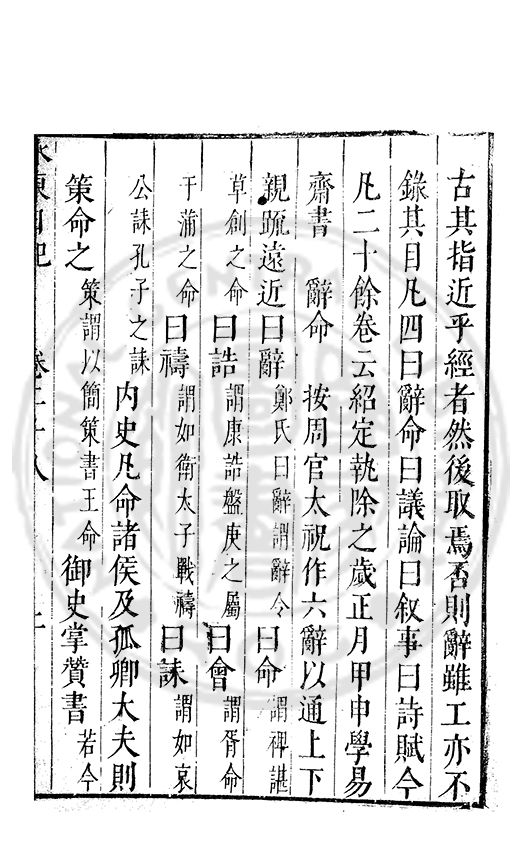 古其指近乎經者然後取焉否則辭雖工亦不
錄其目凡四曰辭命曰議論曰敘事曰詩賦今
凡二十餘卷云紹定執除之歲正月甲申學易
齋書　辭命　按周官太祝作六辭以通上下
親疏遠近曰辭鄭氏曰辭謂辭令曰命謂裨諶
草創之命曰誥謂康誥盤庚之屬曰會謂胥命
于蒲之命曰禱謂如衛太子戰禱曰誄謂如哀
公誄孔子之誄內史凡命諸侯及孤卿大夫則
策命之策謂以簡策書王命御史掌贊書若今
水東日記　卷二十八